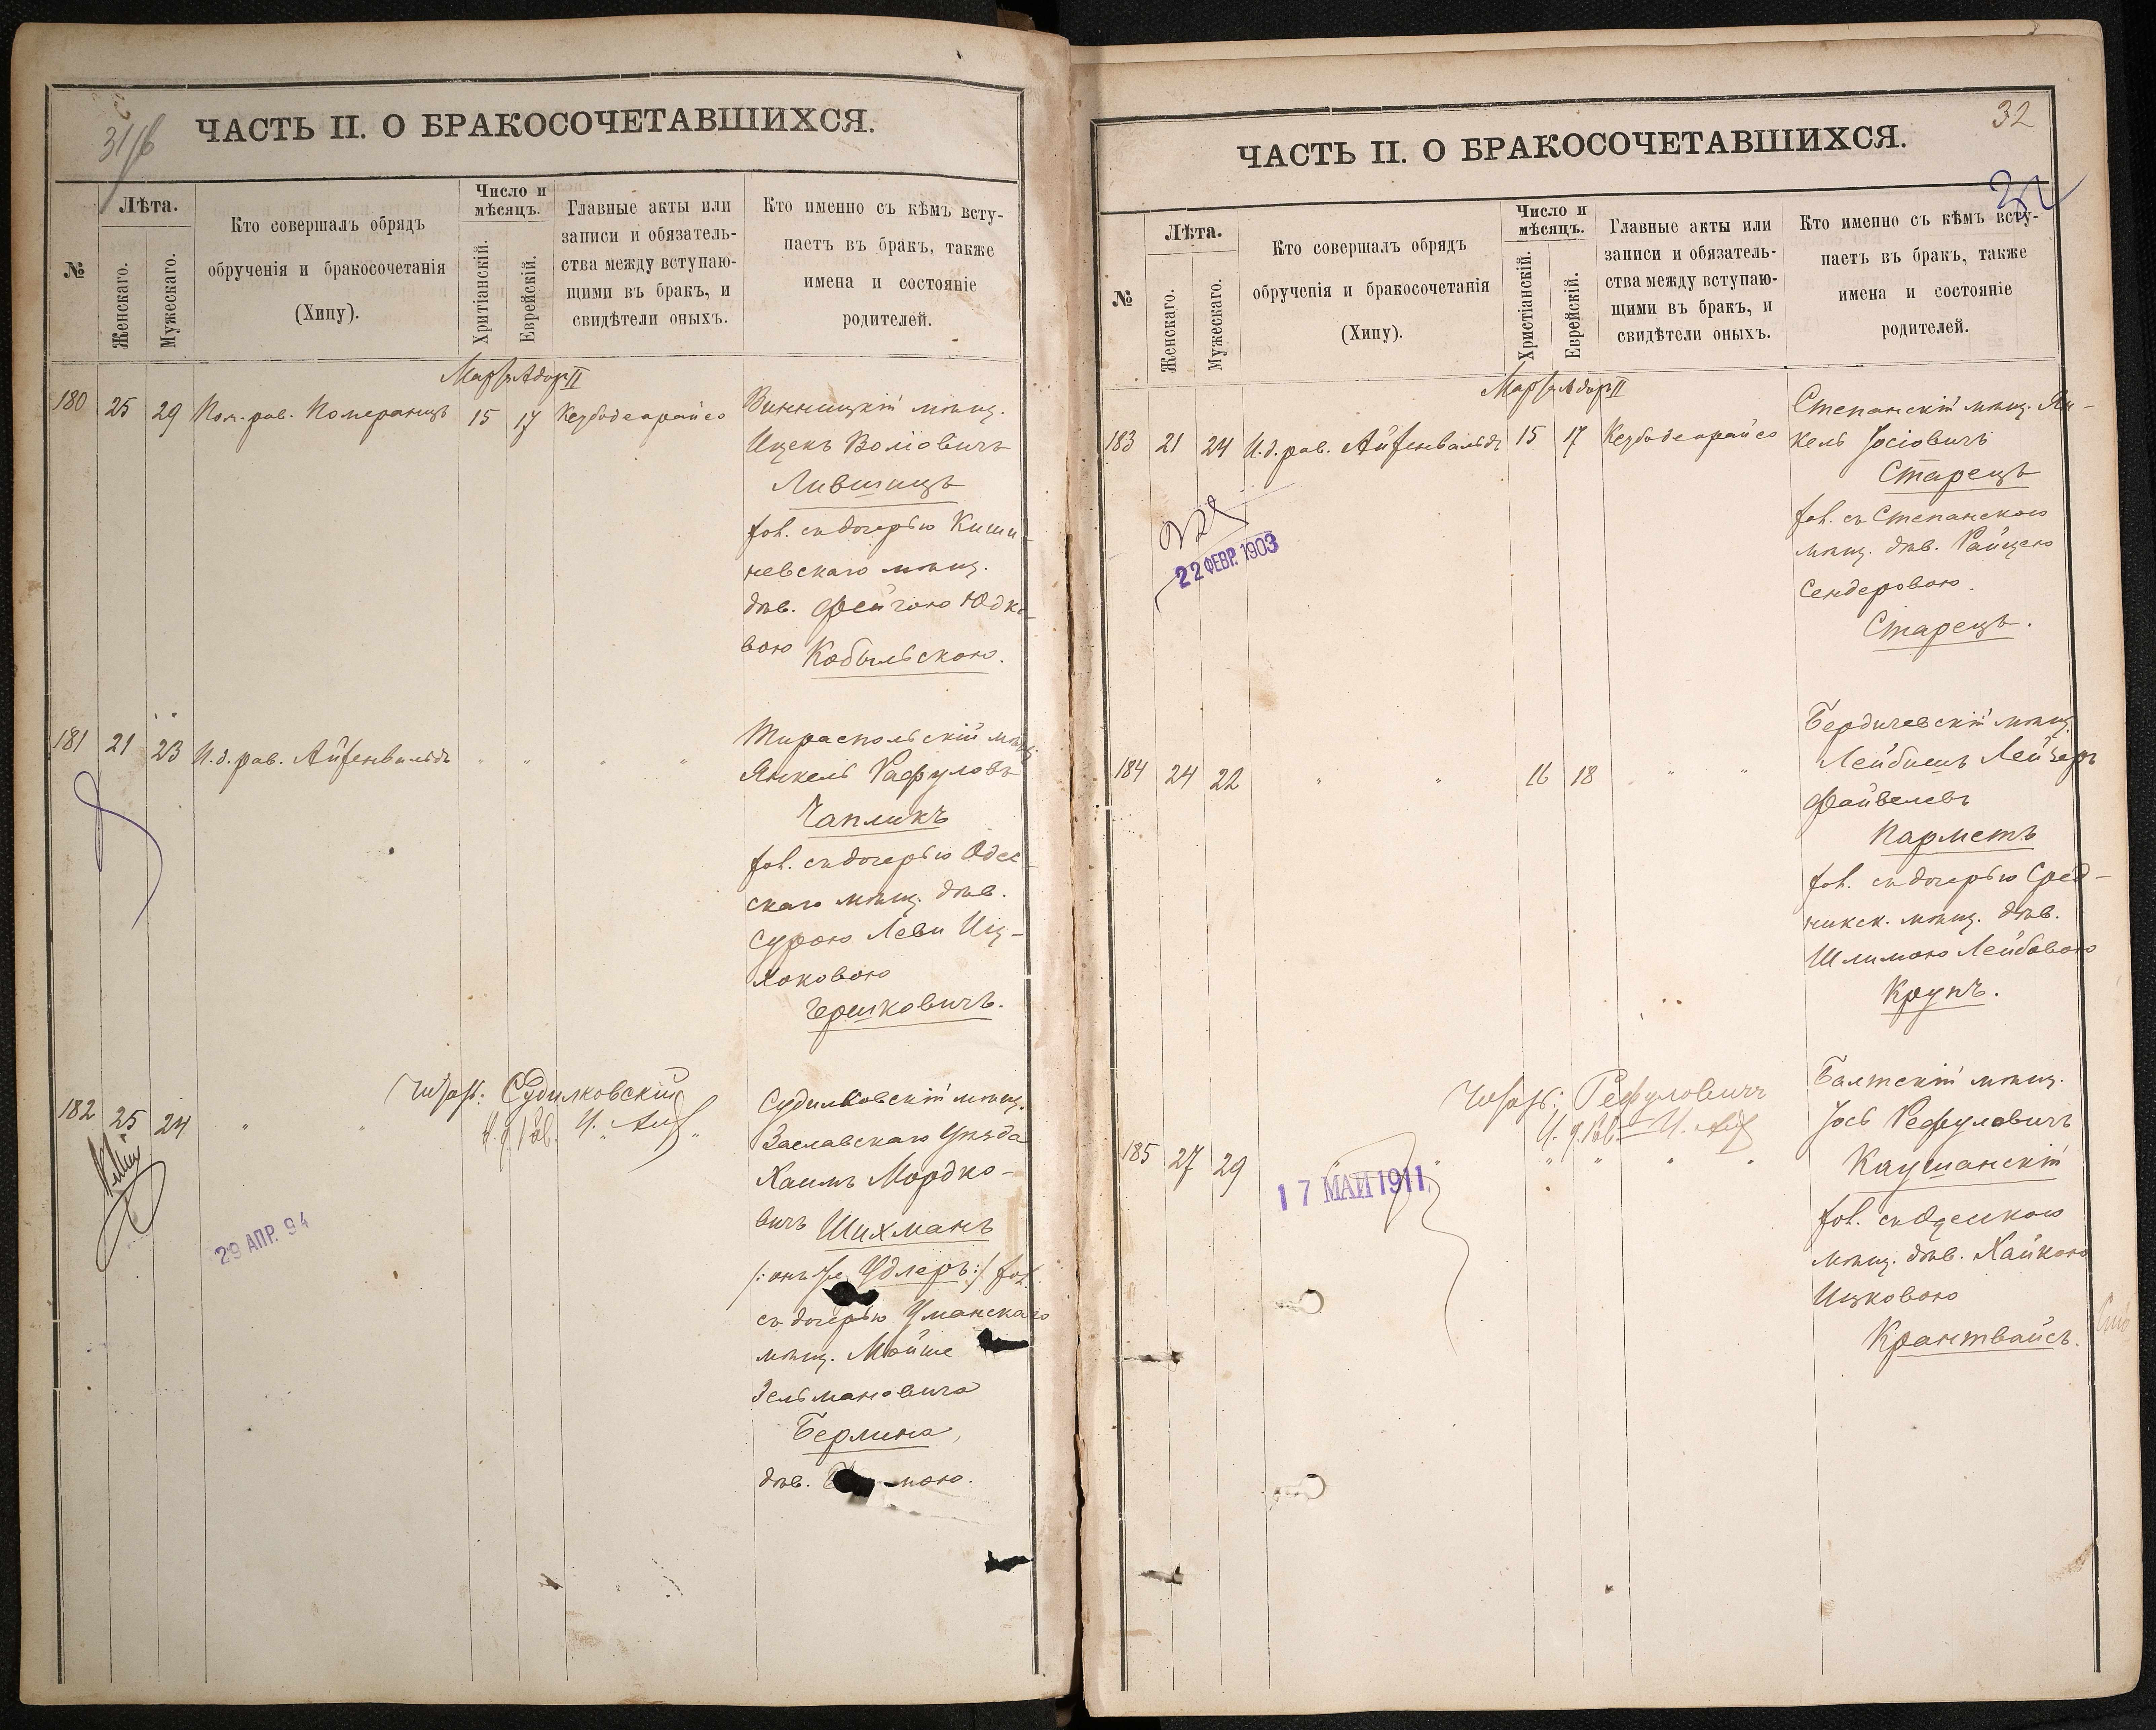 31/б
ЧАСТЬ II. О БРАКОСОЧЕТАВШИХСЯ.
№
Лѣта.
Женскаго.
Мужескаго.
Кто совершалъ обрядъ
обрученія и бракосочетанія
(Хипу).
Число и
мѣсяцъ.
Хритіанскій.
Еврейскій.
Главные акты или
записи и обязатель-
ства между вступаю-
щими въ бракъ, и
свидѣтели оныхъ.
Кто именно съ кѣмъ всту-
паетъ въ бракъ, также
имена и состояніе
родителей.
Мартъ Адоръ II
180 25 29 Пом. рав. Померанцъ 15 17 Кезубодеорайсо
Винницкій мѣщ.
Ицекъ Воліовичъ
Лившицъ
хол. съ дочерью Киши-
невскаго мѣщ.
дѣв. Фейгою Юдко-
вою Кобыльскою.
181 21 23 И.д. рав. Айзенвальдъ " " " "
Тираспольскій мѣщ.
Янкель Рафуловъ
Чапликъ
хол. съ дочерью Одес-
скаго мѣщ. дѣв.
Сурою Леви Иц-
хоковою
Гершковичъ.
Читать: Судилковскій
И. д. Рав. И. Айз
182 25 24 " "
Судилковскій мѣщ.
Заславскаго Уѣзда
Хаимъ Мордко-
вичъ Шихманъ
/:онъ же Удлеръ:/ хол.
съ дочерью Уманскаго
мѣщ. Мойше
Зельмановича
Берлина,
дѣв. мою.
29 АПР. 94
32
ЧАСТЬ II. О БРАКОСОЧЕТАВШИХСЯ.
32
№
Лѣта.
Женскаго.
Мужескаго.
Кто совершалъ обрядъ
обрученія и бракосочетанія
(Хипу).
Число и
мѣсяцъ.
Христіанскій.
Еврейскій.
Главные акты или
записи и обязатель-
ства между вступаю-
щими въ бракъ, и
свидѣтели оныхъ.
Кто именно съ кѣмъ всту-
паетъ въ бракъ, также
имена и состояніе
родителей.
Мартъ Адоръ II
183 21 24 И.д. рав. Айзенвальдъ 15 17 Кезубодеорайсо
Степанскій мѣщ. Ян-
кель Іосіовичъ
Старецъ
хол. съ Степанскою
мѣщ. дѣв. Райцею
Сендеровою
Старецъ.
22 ФЕВР. 1903
184 24 22 " " 16 18 " "
Бердичевскій мѣщ.
Лейбишъ Лейзеръ
Файвелевъ
Парметъ
хол. съ дочерью Сред-
никск. мѣщ. дѣв.
Шлимою Лейбовою
Крупъ.
Читать: Рефуловичъ
И. д. Рав. И. Айз
185 27 29 " " " " " "
17 МАИ 1911
Балтскій мѣщ.
Іось Рефуловичъ
Каушанскій
хол. съ Одесскою
мѣщ. дѣв. Хайкою
Ицковою
Крантвайсъ.